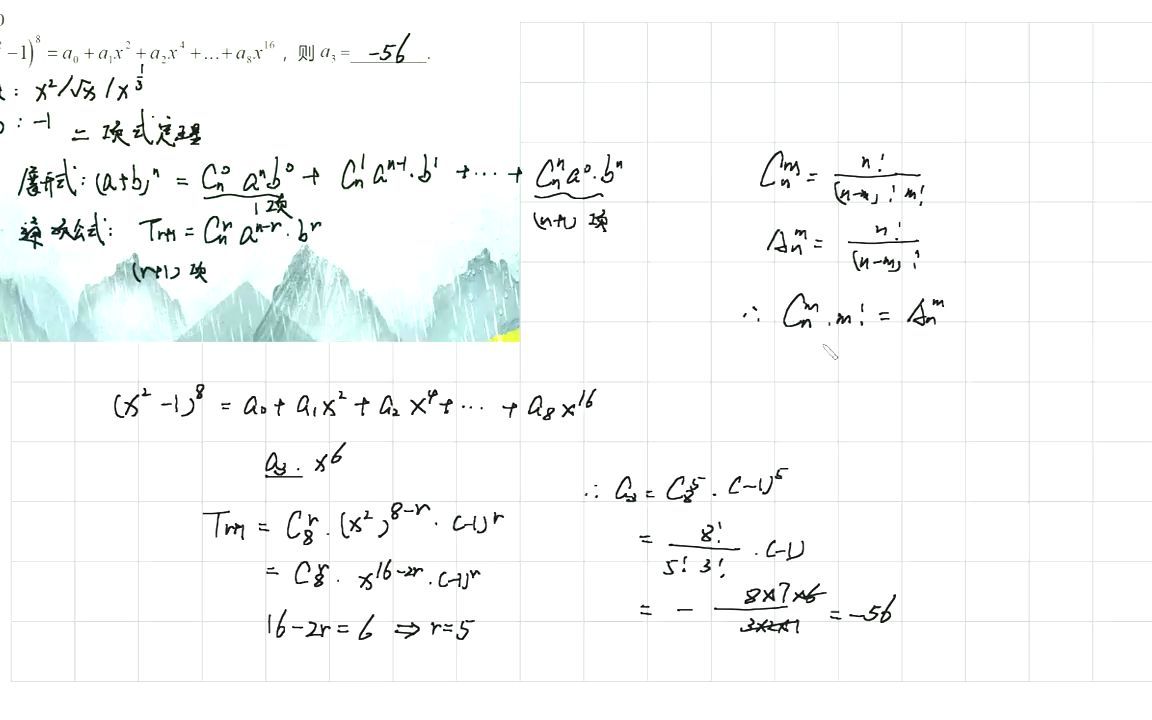 -1)⁸ = a₀ + a₁x² + a₂x⁴ + ... + a₈x¹⁶ ，则 a₃ = -56 .
: x²/√x / x^(1/3)
: -1 二项式定理
展开式: (a+b)ⁿ = Cₙ⁰ aⁿb⁰ + Cₙ¹ aⁿ⁻¹·b¹ + ··· + Cₙⁿ a⁰·bⁿ
1项
(n+1) 项
公式: Tᵣ₊₁ = Cₙʳ aⁿ⁻ʳ·bʳ
(r+1) 项
Cₙᵐ = n! / (n-m)! m!
Aₙᵐ = n! / (n-m)!
∴ Cₙᵐ · m! = Aₙᵐ
(x² -1)⁸ = a₀ + a₁x² + a₂x⁴ + ··· + a₈x¹⁶
a₃ · x⁶
Tᵣ₊₁ = C₈ʳ · (x²)⁸⁻ʳ · (-1)ʳ
= C₈ʳ · x¹⁶⁻²ʳ · (-1)ʳ
16-2r = 6 ⇒ r=5
∴ a₃ = C₈⁵ · (-1)⁵
= 8! / 5! 3! · (-1)
= - 8×7×6 / 3×2×1 = -56